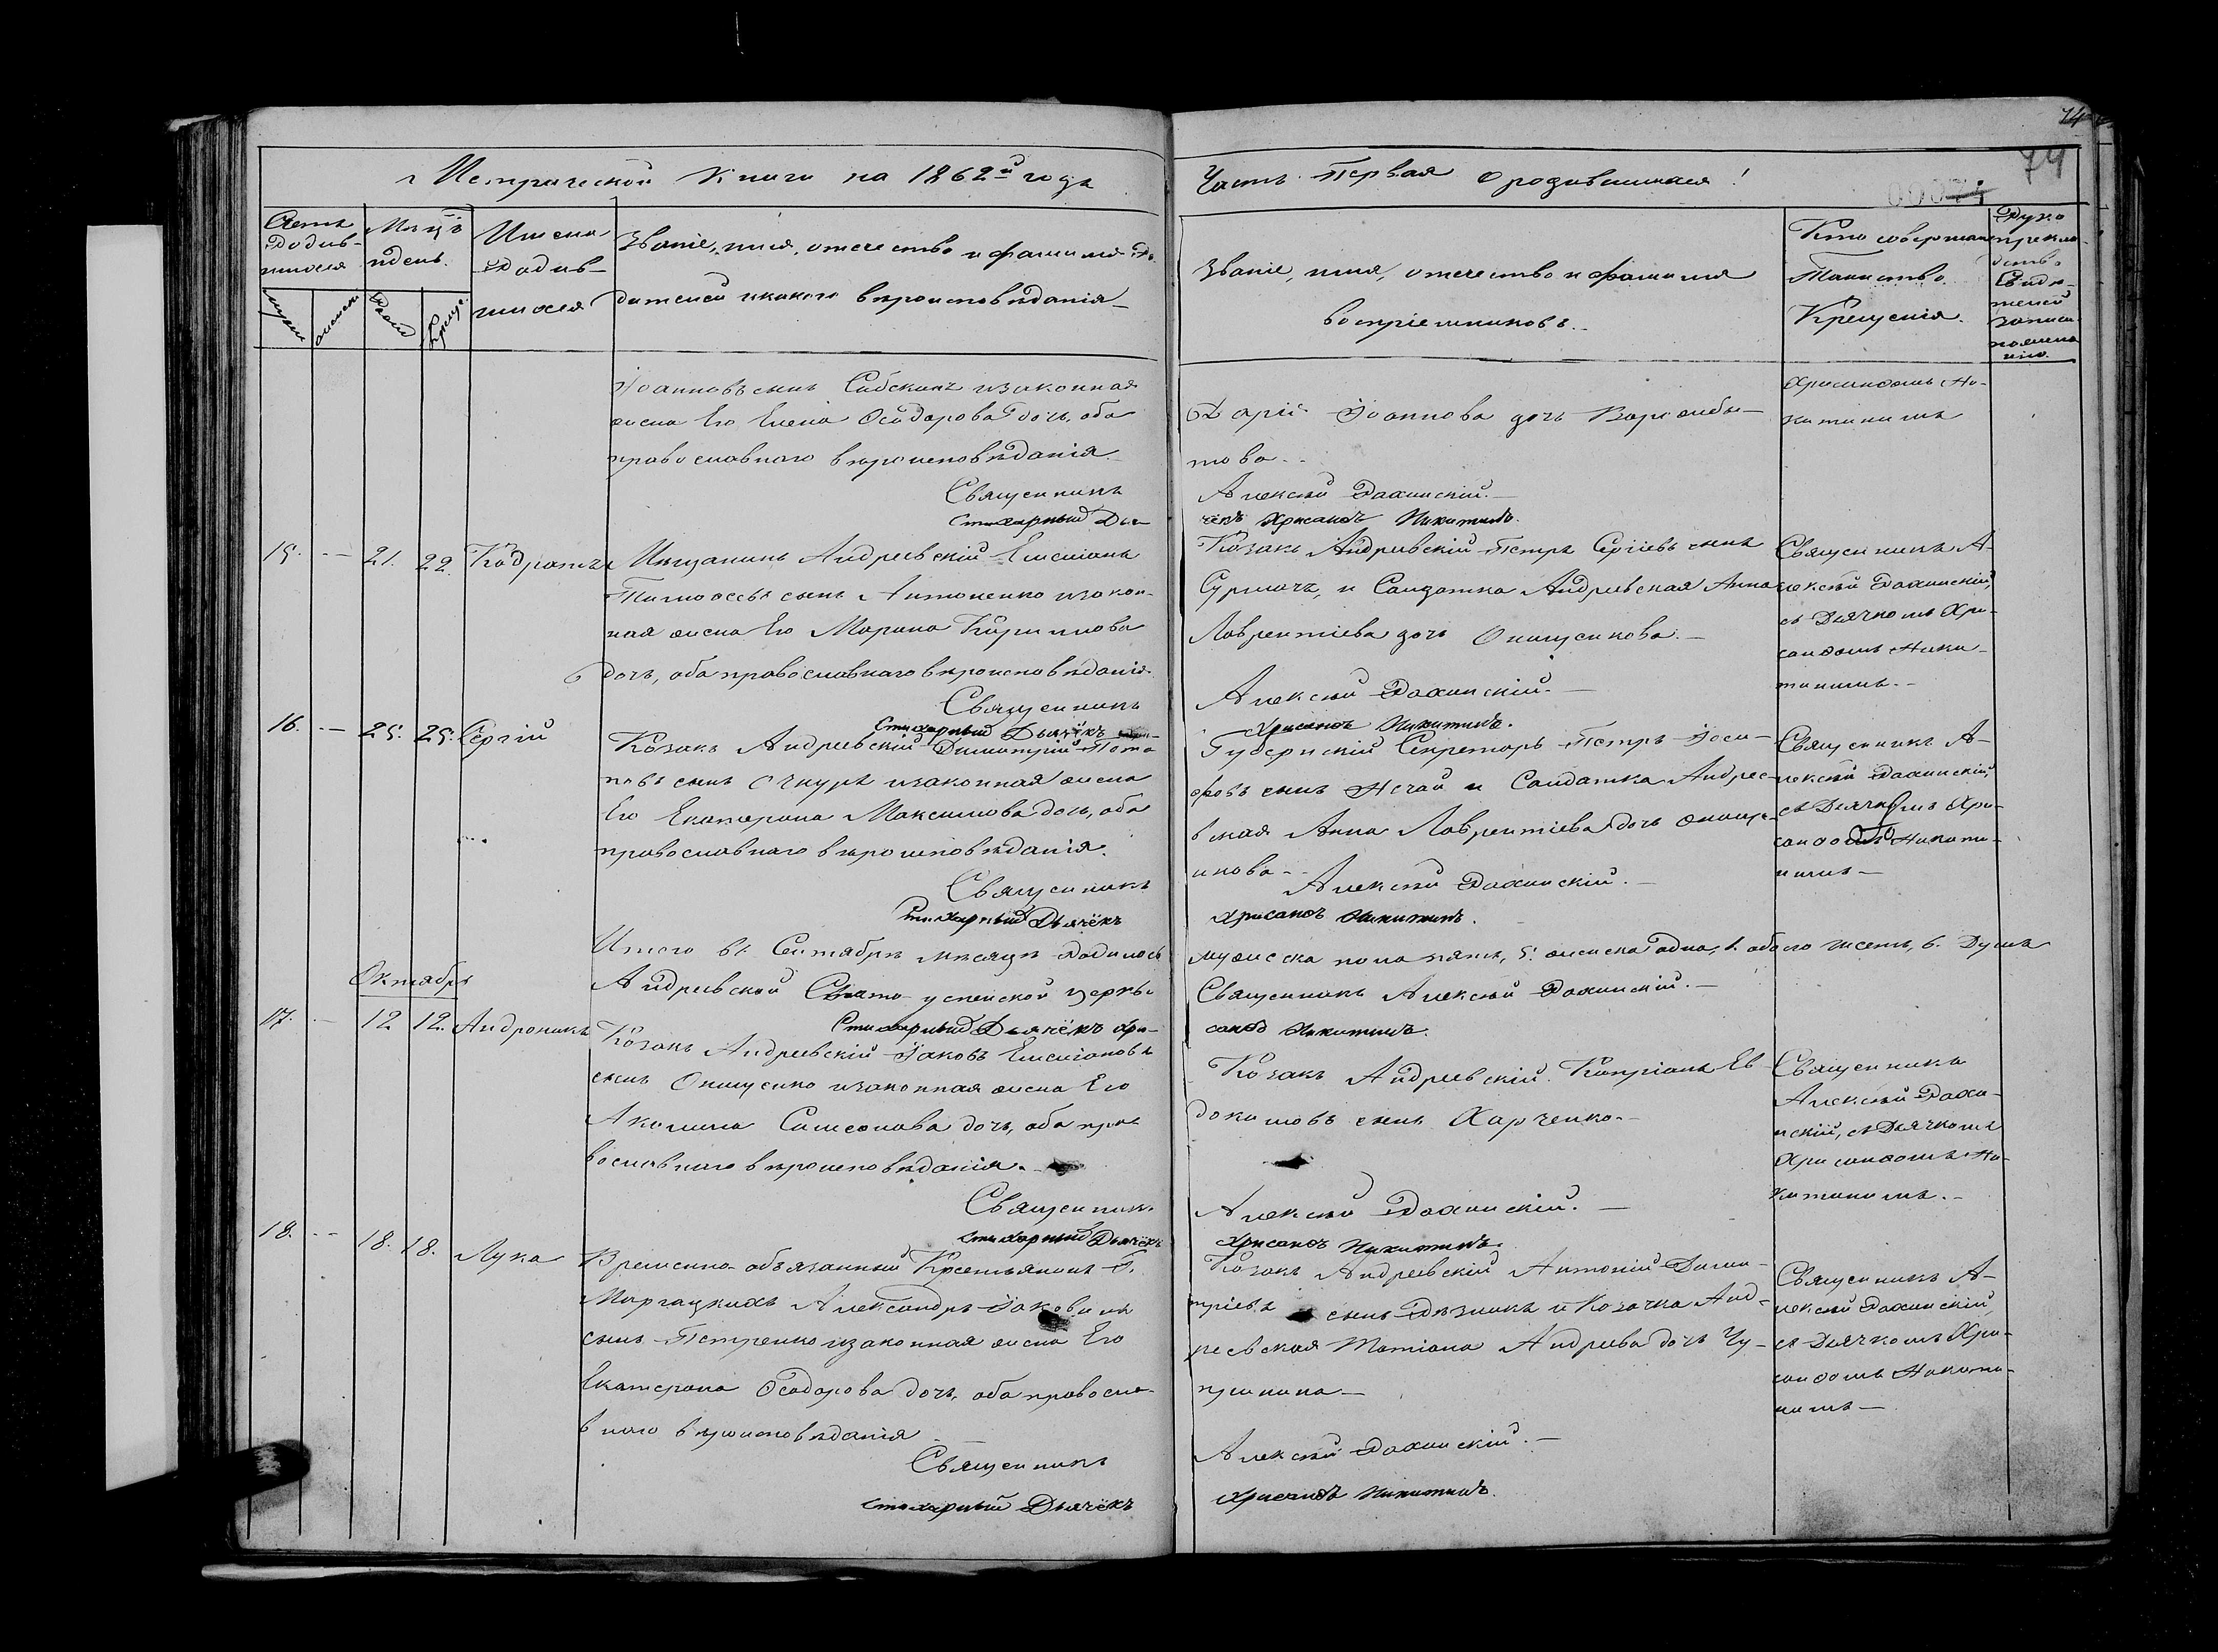 74
Метрической Книги на 1862й года
Часть Первая о родившихся!
74
Счетъ родившихся
Мѣсяцъ и день.
Имена родившихся
Званіе, имя, отечество и фамилія Родителей и какого вѣроисповѣданія
Званіе, имя, отечество и фамилія воспріемниковъ.
Кто совершалъ Таинство Крещенія.
Іоанновъ сынъ и законная
жена Его Елена Ѳеодорова дочь, оба
православнаго вѣроисповѣданія
Священникъ
Стихарный Дья-
Дарія Іоаннова дочь
това.
Алексѣй
чёкъ Хрисанѳъ Никитинъ.
Хрисанѳомъ Ни-
китинымъ
15. — 21. 22. Кодратъ
Мѣщанинъ Андреевскій Емеліанъ
Тимоѳеевъ сынъ Антоненко и закон-
ная жена Его Марина Кириллова
дочь, оба православнаго вѣроисповѣданія.
Священникъ
Стихарный Дьячёкъ
Козакъ Андреевскій Петръ Сергіевъ сынъ
Сурмачъ, и Солдатка Андреевская Анна
Лаврентіева дочь Онищенкова.
Алексѣй
Хрисанѳъ Никитинъ.
Священникъ А-
лексѣй
съ Дьячкомъ Хри-
санѳомъ Ники-
тинымъ.
16. — 25. 25. Сергій
Козакъ Андреевскій Димитрій Пота-
повъ сынъ Очкуръ и законная жена
Его Екатерина Максимова дочь, оба
православнаго вѣроисповѣданія.
Священникъ
Стихарный Дьячёкъ
Губернскій Секретарь Петръ Іоси-
фовъ сынъ Нечай и Солдатка Андрее-
вская Анна Лаврентіева дочь Онище-
нкова.
Алексѣй
Хрисанѳъ Никитинъ.
Священникъ А-
лексѣй
съ Дьячкомъ Хри-
санѳомъ Никити-
нымъ
Итого въ Сентябрѣ мѣсяцѣ родилось
мужеска пола пять, 5. женска одна, 1. обоего шесть, 6. Душъ
Андреевской Свято-успенской церкви
Священникъ Алексѣй
Стихарный Дьячёкъ Хри-
санѳъ Никитинъ.
Октябрь
17. — 12 12. Андроникъ
Козакъ Андреевскій Іаковъ Емеліановъ
сынъ Онищенко и законная жена Его
Акилина Самсонова дочь, оба пра-
вославнаго вѣроисповѣданія.
Священникъ
Стихарный Дьячёкъ
Козакъ Андреевскій Кипріанъ Ев-
докимовъ сынъ Харченко.
Алексѣй
Хрисанѳъ Никитинъ.
Священникъ
Алексѣй
съ Дьячкомъ
Хрисанѳомъ Ни-
китинымъ.
18. — 18. 18. Лука
Временно-обязанный Крестьянинъ Г.
Александръ Іаковлевъ
сынъ Петренко и законная жена Его
Екатерина Ѳеодорова дочь, оба правосла-
внаго вѣроисповѣданія
Священникъ
Стихарный Дьячёкъ
Козакъ Андреевскій Антоній Дими-
тріевъ сынъ Рѣзникъ и Козачка Анд-
реевская Татіана Андреева дочь Чу-
принина
Алексѣй
Хрисанѳъ Никитинъ.
Священникъ А-
лексѣй
съ Дьячкомъ Хри-
санѳомъ Никити-
нымъ